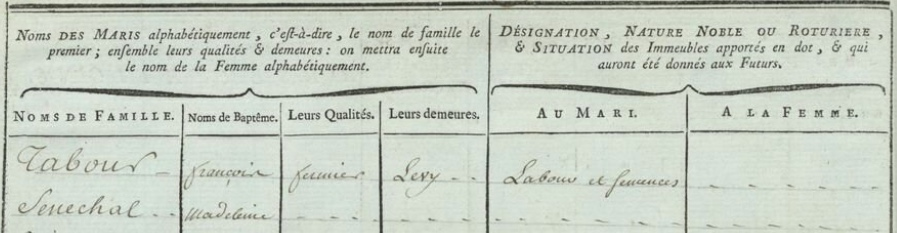 Noms DES MARIS alphabétiquement, c'est-à-dire, le nom de famille le
premier; ensemble leurs qualités & demeures: on mettra ensuite
le nom de la Femme alphabétiquement.
DÉSIGNATION, NATURE NOBLE OU ROTURIERE,
& SITUATION des Immeubles apportés en dot, & qui
auront été donnés aux Futurs.
NOMS DE FAMILLE. Noms de Baptême. Leurs Qualités. Leurs demeures. AU MARI. A LA FEMME.
Tabour françois fermier Levy Labour et semences
Senechal Madeleine